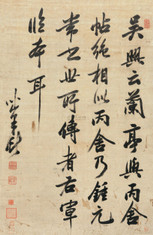 吳興云蘭亭與丙舍
帖絕相似丙舍乃鍾元
常書世所傳者右軍
臨本耳